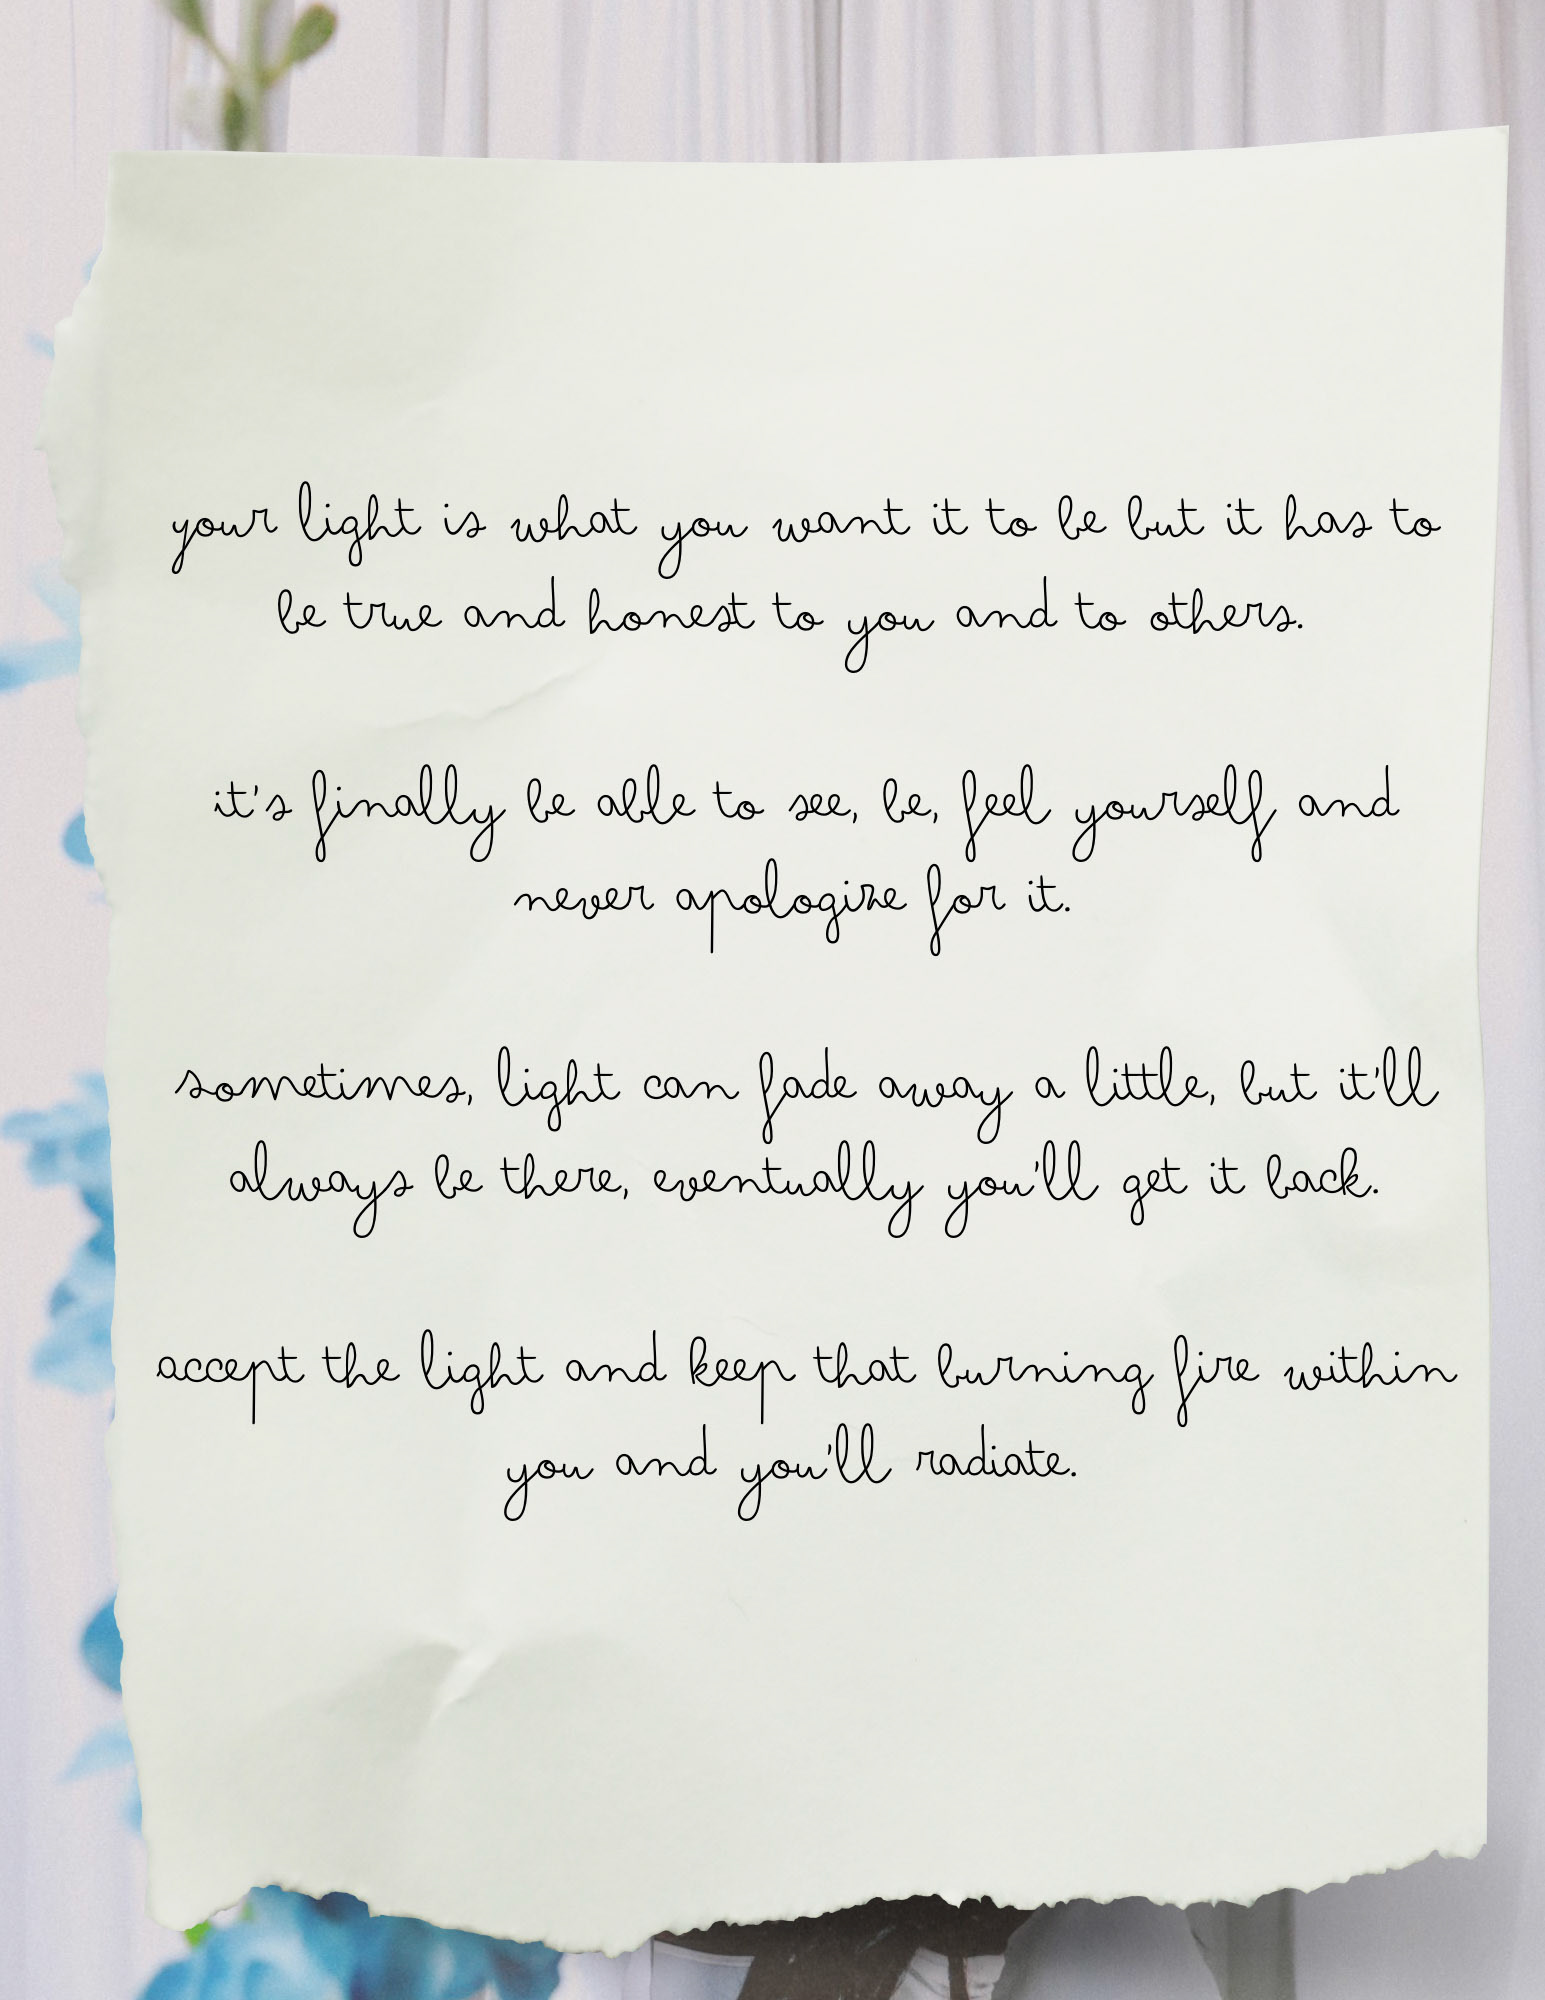 your light is what you want it to be but it has to
be true and honest to you and to others.
it's finally be able to see, be, feel yourself and
never apologize for it.
sometimes, light can fade away a little, but it'll
always be there, eventually you'll get it back.
accept the light and keep that burning fire within
you and you'll radiate.